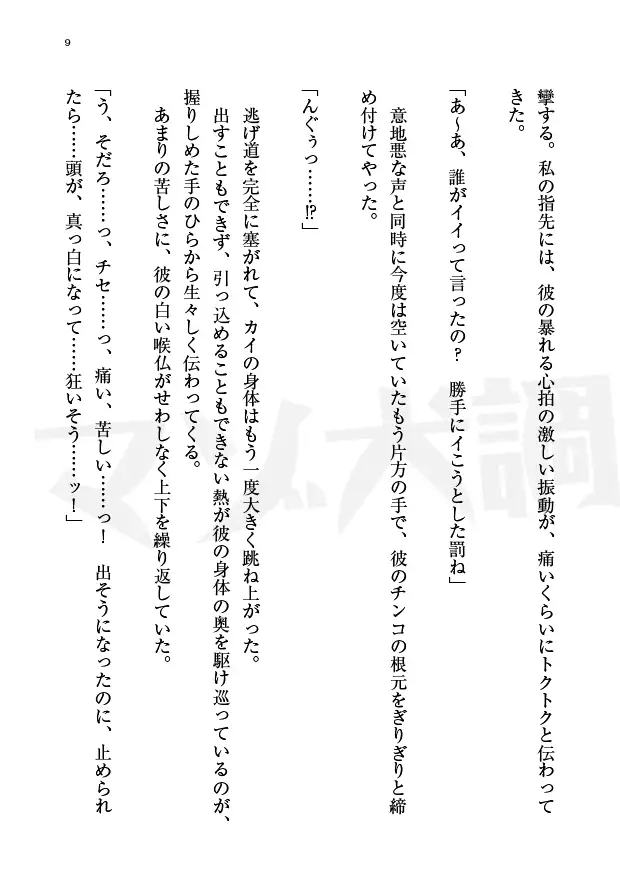 9
攣する。私の指先には、彼の暴れる心拍の激しい振動が、痛いくらいにトクトクと伝わって
きた。
「あ～あ、誰がイイって言ったの？　勝手にイこうとした罰ね」
意地悪な声と同時に今度は空いていたもう片方の手で、彼のチンコの根元をぎりぎりと締
め付けてやった。
「んぐぅっ……⁉」
逃げ道を完全に塞がれて、カイの身体はもう一度大きく跳ね上がった。
出すこともできず、引っ込めることもできない熱が彼の身体の奥を駆け巡っているのが、
握りしめた手のひらから生々しく伝わってくる。
あまりの苦しさに、彼の白い喉仏がせわしなく上下を繰り返していた。
「う、そだろ……っ、チセ……っ、痛い、苦しい……っ！　出そうになったのに、止められ
たら……頭が、真っ白になって……狂いそう……ッ！」
マゾ犬調